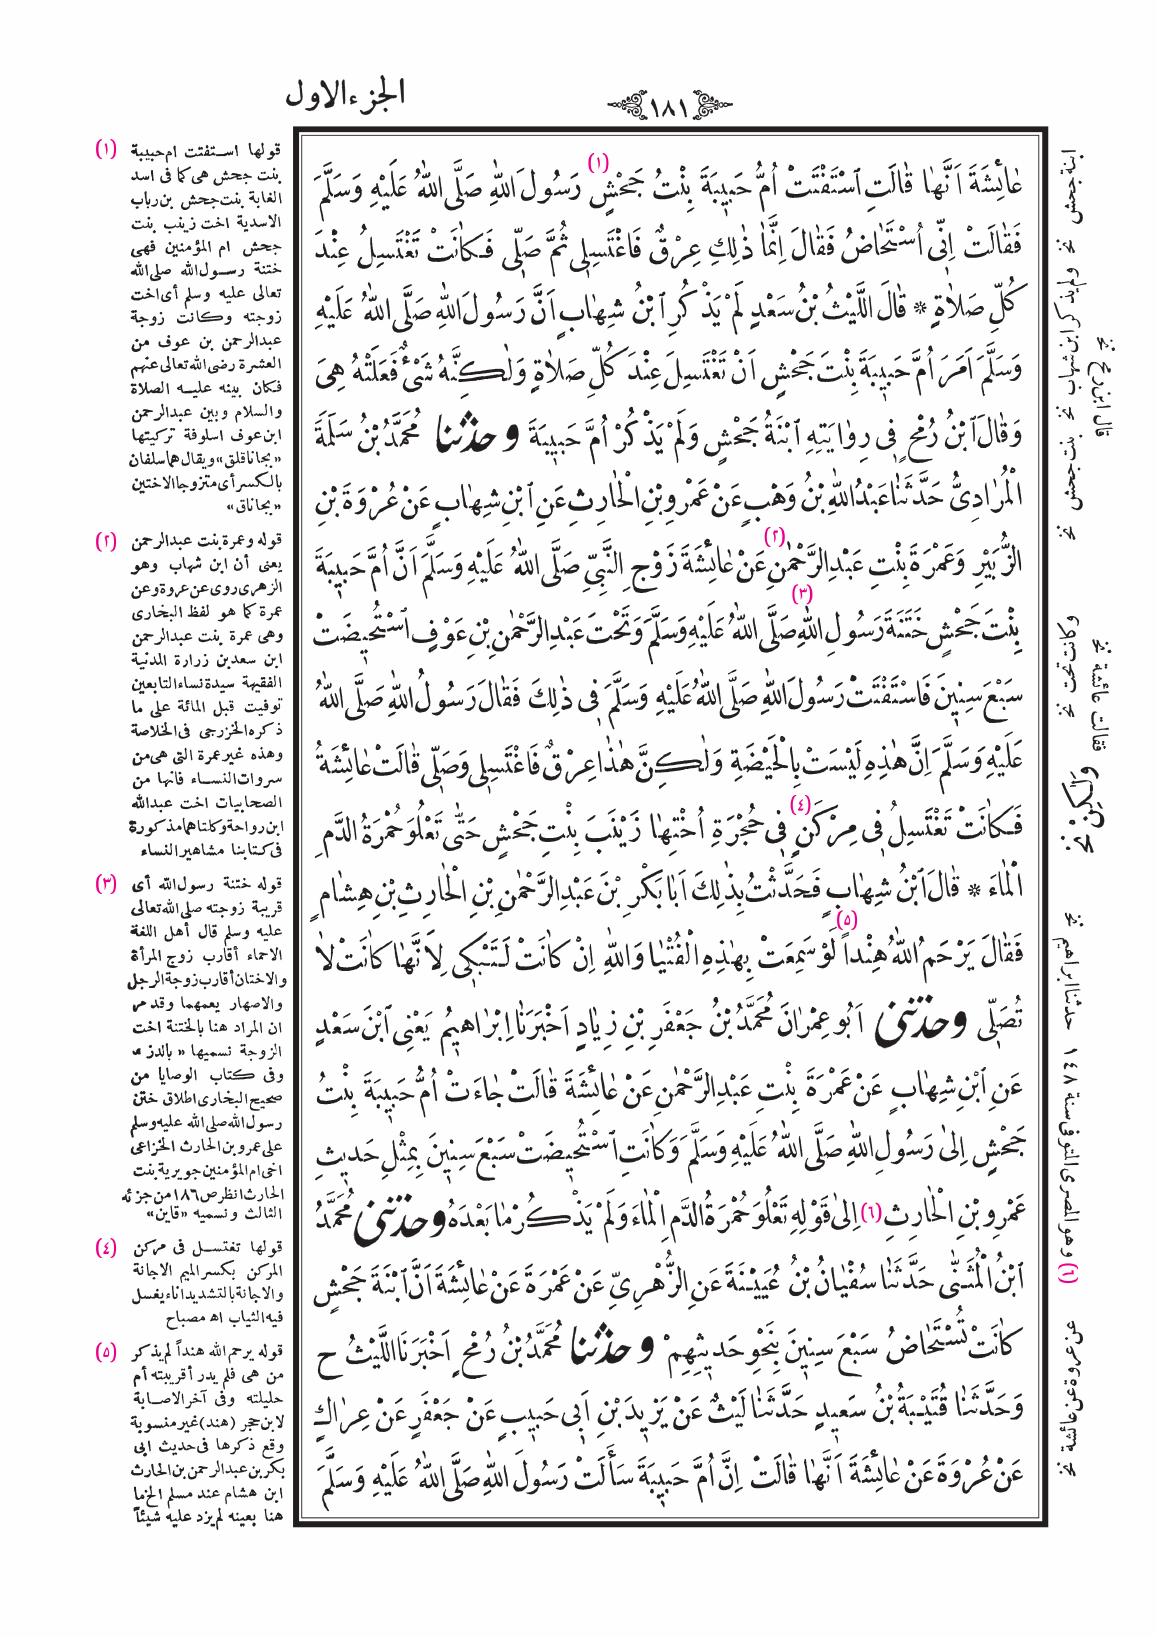 الجزء الاول
١٨١
عَائِشَةَ اَنَّهَا قَالَتِ اسْتَفْتَتْ اُمُّ حَبِيبَةَ بِنْتُ جَحْشٍ (١) رَسُولَ اللّٰهِ صَلَّى اللّٰهُ عَلَيْهِ وَسَلَّمَ
فَقَالَتْ اِنِّى اُسْتَحَاضُ فَقَالَ اِنَّمَا ذٰلِكِ عِرْقٌ فَاغْتَسِلِى ثُمَّ صَلِّى فَكَانَتْ تَغْتَسِلُ عِنْدَ
كُلِّ صَلَاةٍ * قَالَ اللَّيْثُ بْنُ سَعْدٍ لَمْ يَذْكُرِ ابْنُ شِهَابٍ اَنَّ رَسُولَ اللّٰهِ صَلَّى اللّٰهُ عَلَيْهِ
وَسَلَّمَ اَمَرَ اُمَّ حَبِيبَةَ بِنْتَ جَحْشٍ اَنْ تَغْتَسِلَ عِنْدَ كُلِّ صَلَاةٍ وَلٰكِنَّهُ شَىْءٌ فَعَلَتْهُ هِىَ
وَقَالَ ابْنُ رُمْحٍ فِى رِوَايَتِهِ ابْنَةُ جَحْشٍ وَلَمْ يَذْكُرْ اُمَّ حَبِيبَةَ وحدثنا مُحَمَّدُ بْنُ سَلَمَةَ
الْمُرَادِىُّ حَدَّثَنَا عَبْدُ اللّٰهِ بْنُ وَهْبٍ عَنْ عَمْرِو بْنِ الْحَارِثِ عَنِ ابْنِ شِهَابٍ عَنْ عُرْوَةَ بْنِ
الزُّبَيْرِ وَعَمْرَةَ بِنْتِ عَبْدِ الرَّحْمٰنِ (٢) عَنْ عَائِشَةَ زَوْجِ النَّبِىِّ صَلَّى اللّٰهُ عَلَيْهِ وَسَلَّمَ اَنَّ اُمَّ حَبِيبَةَ
بِنْتَ جَحْشٍ خَتَنَةَ رَسُولِ اللّٰهِ (٣) صَلَّى اللّٰهُ عَلَيْهِ وَسَلَّمَ وَتَحْتَ عَبْدِ الرَّحْمٰنِ بْنِ عَوْفٍ اسْتُحِيضَتْ
سَبْعَ سِنِينَ فَاسْتَفْتَتْ رَسُولَ اللّٰهِ صَلَّى اللّٰهُ عَلَيْهِ وَسَلَّمَ فِى ذٰلِكَ فَقَالَ رَسُولُ اللّٰهِ صَلَّى اللّٰهُ
عَلَيْهِ وَسَلَّمَ اِنَّ هٰذِهِ لَيْسَتْ بِالْحَيْضَةِ وَلٰكِنَّ هٰذَا عِرْقٌ فَاغْتَسِلِى وَصَلِّى قَالَتْ عَائِشَةُ
فَكَانَتْ تَغْتَسِلُ فِى مِرْكَنٍ (٤) فِى حُجْرَةِ اُخْتِهَا زَيْنَبَ بِنْتِ جَحْشٍ حَتّٰى تَعْلُوَ حُمْرَةُ الدَّمِ
الْمَاءَ * قَالَ ابْنُ شِهَابٍ فَحَدَّثْتُ بِذٰلِكَ اَبَا بَكْرِ بْنَ عَبْدِ الرَّحْمٰنِ بْنِ الْحَارِثِ بْنِ هِشَامٍ
فَقَالَ يَرْحَمُ اللّٰهُ هِنْداً (٥) لَوْ سَمِعَتْ بِهٰذِهِ الْفُتْيَا وَاللّٰهِ اِنْ كَانَتْ لَتَبْكِى لِاَنَّهَا كَانَتْ لَا
تُصَلِّى وحدثنى اَبُو عِمْرَانَ مُحَمَّدُ بْنُ جَعْفَرِ بْنِ زِيَادٍ اَخْبَرَنَا اِبْرَاهِيمُ يَعْنِى ابْنَ سَعْدٍ
عَنِ ابْنِ شِهَابٍ عَنْ عَمْرَةَ بِنْتِ عَبْدِ الرَّحْمٰنِ عَنْ عَائِشَةَ قَالَتْ جَاءَتْ اُمُّ حَبِيبَةَ بِنْتُ
جَحْشٍ اِلٰى رَسُولِ اللّٰهِ صَلَّى اللّٰهُ عَلَيْهِ وَسَلَّمَ وَكَانَتِ اسْتُحِيضَتْ سَبْعَ سِنِينَ بِمِثْلِ حَدِيثِ
عَمْرِو بْنِ الْحَارِثِ (٦) اِلٰى قَوْلِهِ تَعْلُوَ حُمْرَةُ الدَّمِ الْمَاءَ وَلَمْ يَذْكُرْ مَا بَعْدَهُ وحدثنى مُحَمَّدُ
ابْنُ الْمُثَنّٰى حَدَّثَنَا سُفْيَانُ بْنُ عُيَيْنَةَ عَنِ الزُّهْرِىِّ عَنْ عَمْرَةَ عَنْ عَائِشَةَ اَنَّ ابْنَةَ جَحْشٍ
كَانَتْ تُسْتَحَاضُ سَبْعَ سِنِينَ بِنَحْوِ حَدِيثِهِمْ وحدثنا مُحَمَّدُ بْنُ رُمْحٍ اَخْبَرَنَا اللَّيْثُ ح
وَحَدَّثَنَا قُتَيْبَةُ بْنُ سَعِيدٍ حَدَّثَنَا لَيْثٌ عَنْ يَزِيدَ بْنِ اَبِى حَبِيبٍ عَنْ جَعْفَرٍ عَنْ عِرَاكٍ
عَنْ عُرْوَةَ عَنْ عَائِشَةَ اَنَّهَا قَالَتْ اِنَّ اُمَّ حَبِيبَةَ سَأَلَتْ رَسُولَ اللّٰهِ صَلَّى اللّٰهُ عَلَيْهِ وَسَلَّمَ
(١) قولها استفتت ام حبيبة
بنت جحش هى كما فى اسد
الغابة بنت جحش بن رباب
الاسدية اخت زينب بنت
جحش ام المؤمنين فهى
ختنة رسول الله صلى الله
تعالى عليه وسلم أى اخت
زوجته وكانت زوجة
عبدالرحمن بن عوف من
العشرة رضى الله تعالى عنهم
فكان بينه عليه الصلاة
والسلام وبين عبدالرحمن
ابن عوف اسلوفة تركيتها
«بجاناقلق» ويقال هما سلفان
بالكسر أى متزوجا الاختين
«بجاناق»
(٢) قوله وعمرة بنت عبدالرحمن
يعنى أن ابن شهاب وهو
الزهرى روى عن عروة وعن
عمرة كما هو لفظ البخارى
وهى عمرة بنت عبدالرحمن
ابن سعد بن زرارة المدنية
الفقيهة سيدة نساء التابعين
توفيت قبل المائة على ما
ذكره الخزرجى فى الخلاصة
وهذه غير عمرة التى هى من
سروات النساء فانها من
الصحابيات اخت عبدالله
ابن رواحة وكلتاهما مذكورة
فى كتابنا مشاهير النساء
(٣) قوله ختنة رسول الله أى
قريبة زوجته صلى الله تعالى
عليه وسلم قال أهل اللغة
الاحماء أقارب زوج المرأة
والاختان أقارب زوجة الرجل
والاصهار يعمهما وقد مر
ان المراد هنا بالختنة اخت
الزوجة نسميها «بالدز»
وفى كتاب الوصايا من
صحيح البخارى اطلاق ختن
رسول الله صلى الله عليه وسلم
على عمرو بن الحارث الخزاعى
اخى ام المؤمنين جويرية بنت
الحارث انظر ص ١٨٦ من جزئه
الثالث ونسميه «قاين»
(٤) قولها تغتسل فى مركن
المركن بكسر الميم الاجانة
والاجانة بالتشديد اناء يغسل
فيه الثياب اه مصباح
(٥) قوله يرحم الله هنداً لم يذكر
من هى فلم يدر أقريبته أم
حليلته وفى آخر الاصابة
لابن حجر (هند) غير منسوبة
وقع ذكرها فى حديث ابى
بكر بن عبدالرحمن بن الحارث
ابن هشام عند مسلم الخ ما
هنا بعينه لم يزد عليه شيئاً
ابنة جحش نخ ولم يذكر ابن شهاب نخ بنت جحش نخ
قال ابن رمح نخ
وكانت تحت نخ
فقالت عائشة نخ
وَلٰكِنْ نخ
حدثنا ابراهيم نخ
(٦) وهو المصرى المتوفى سنة ١٤٨
عن عروة عن عائشة نخ